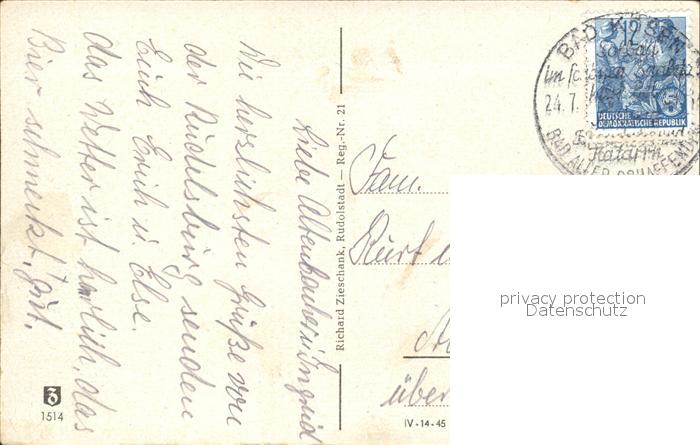 Liebe Altenbacher u. Ingrid
Die herzlichsten Grüße von
der Rudelsburg senden
Euch Erich u. Else.
Das Wetter ist herrlich, das
Bier schmeckt gut.
Richard Zieschank, Rudolstadt — Reg.-Nr. 21
1514
IV-14-45
Fam.
Kurt
über
BAD KÖSEN
Solbad
im schönen Saaletal
24.7.
Katarrh
12
DEUTSCHE
DEMOKRATISCHE REPUBLIK
privacy protection
Datenschutz